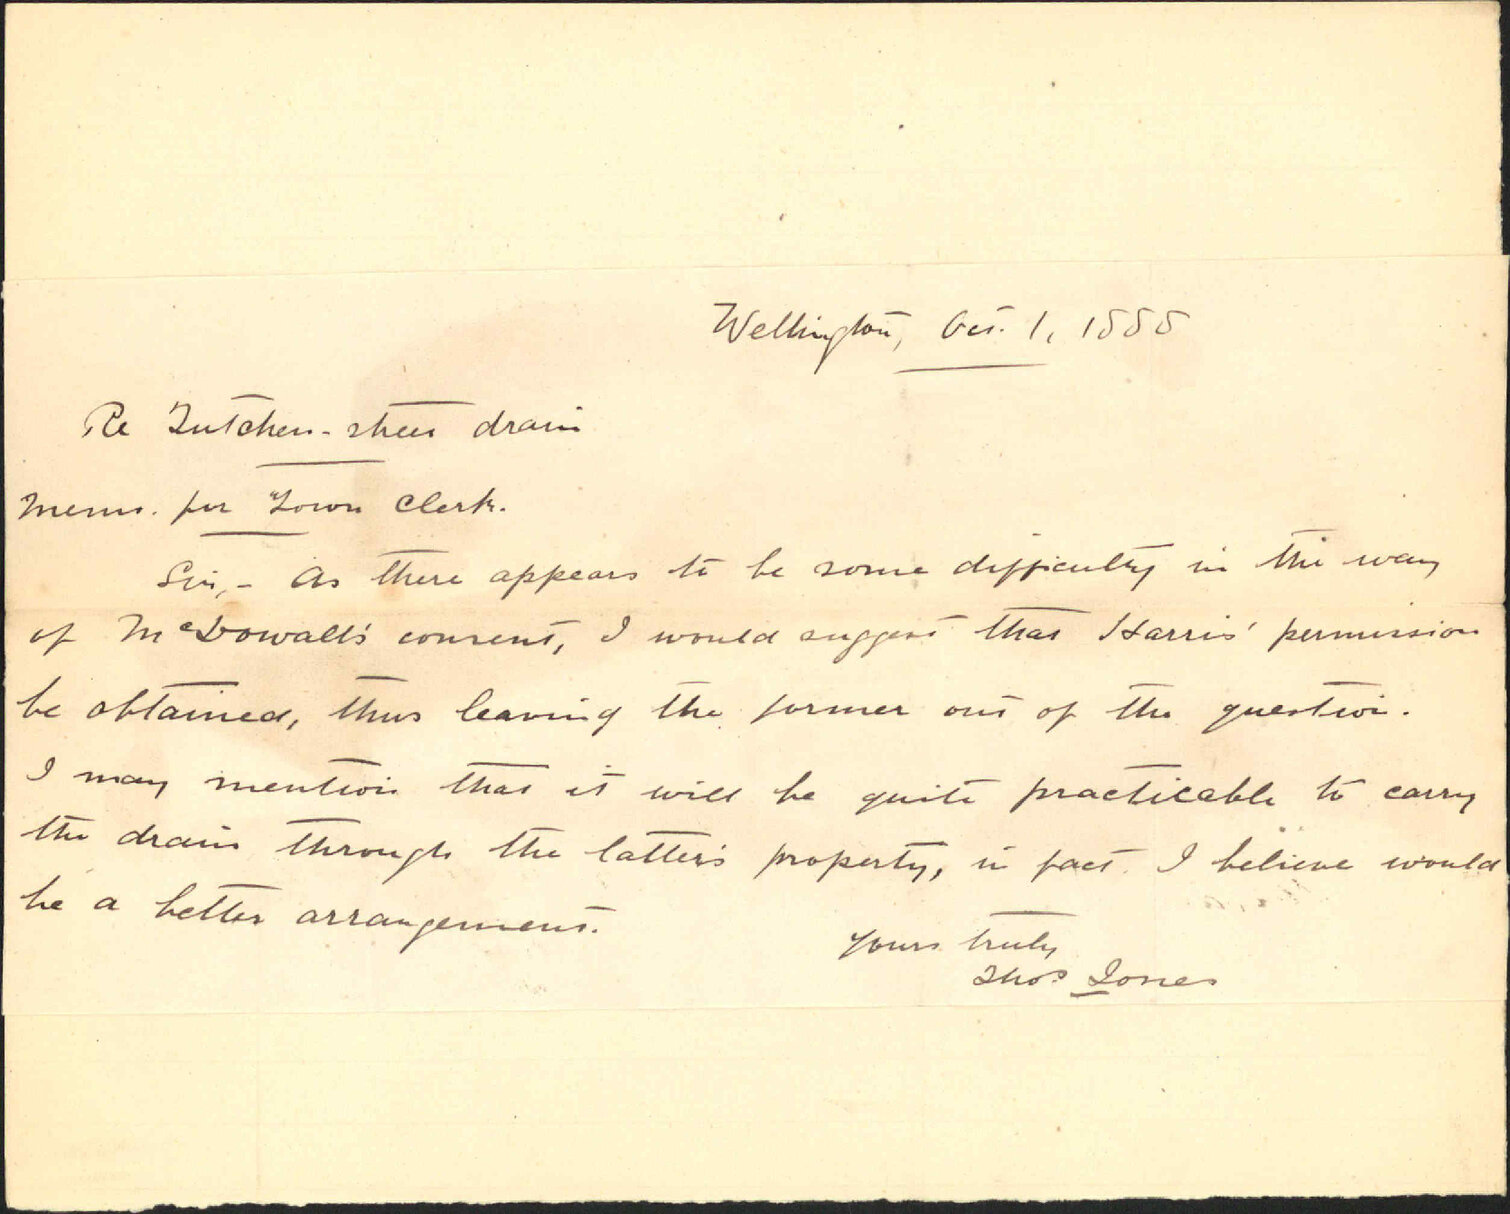 Wellington, Oct. 1, 1888
Re Tutchen-street drain
Memo. for Town Clerk.
Sir,- As there appears to be some difficulty in the way
of McDowall's consent, I would suggest that Harris' permission
be obtained, thus leaving the former out of the question.
I may mention that it will be quite practicable to carry
the drain through the latter's property, in fact I believe would
be a better arrangement.
Yours truly
Thos. Jones